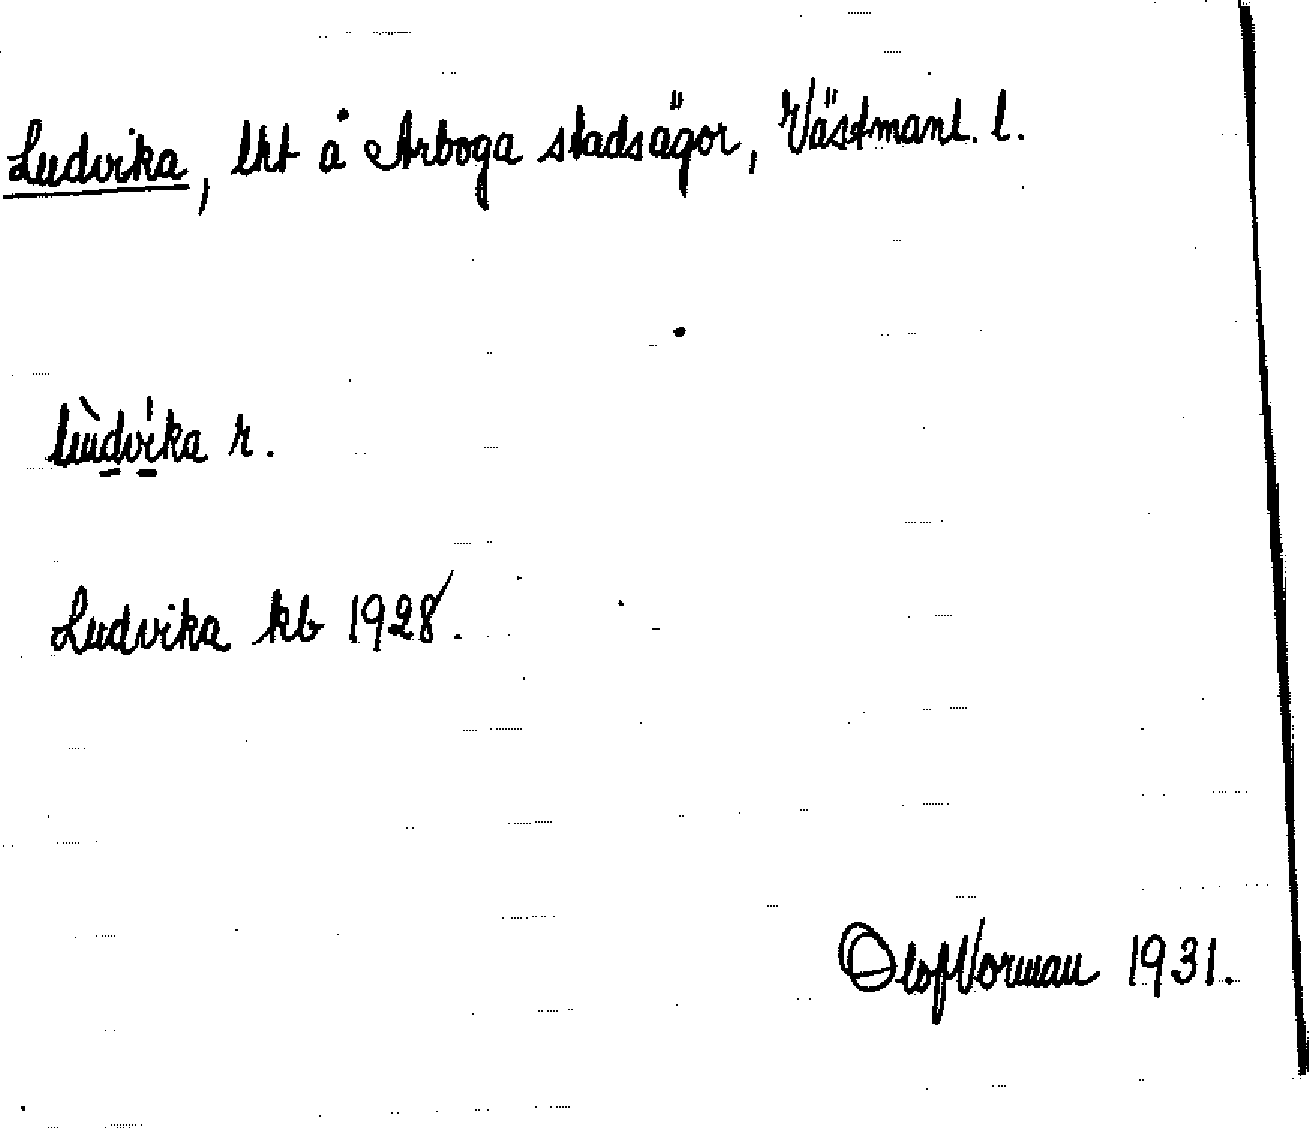 Ludvika, lht å Arboga stadsägor, Västmanl. l.
lùdvi̍ka r.
Ludvika kb 1928.
Olof Norman 1931.